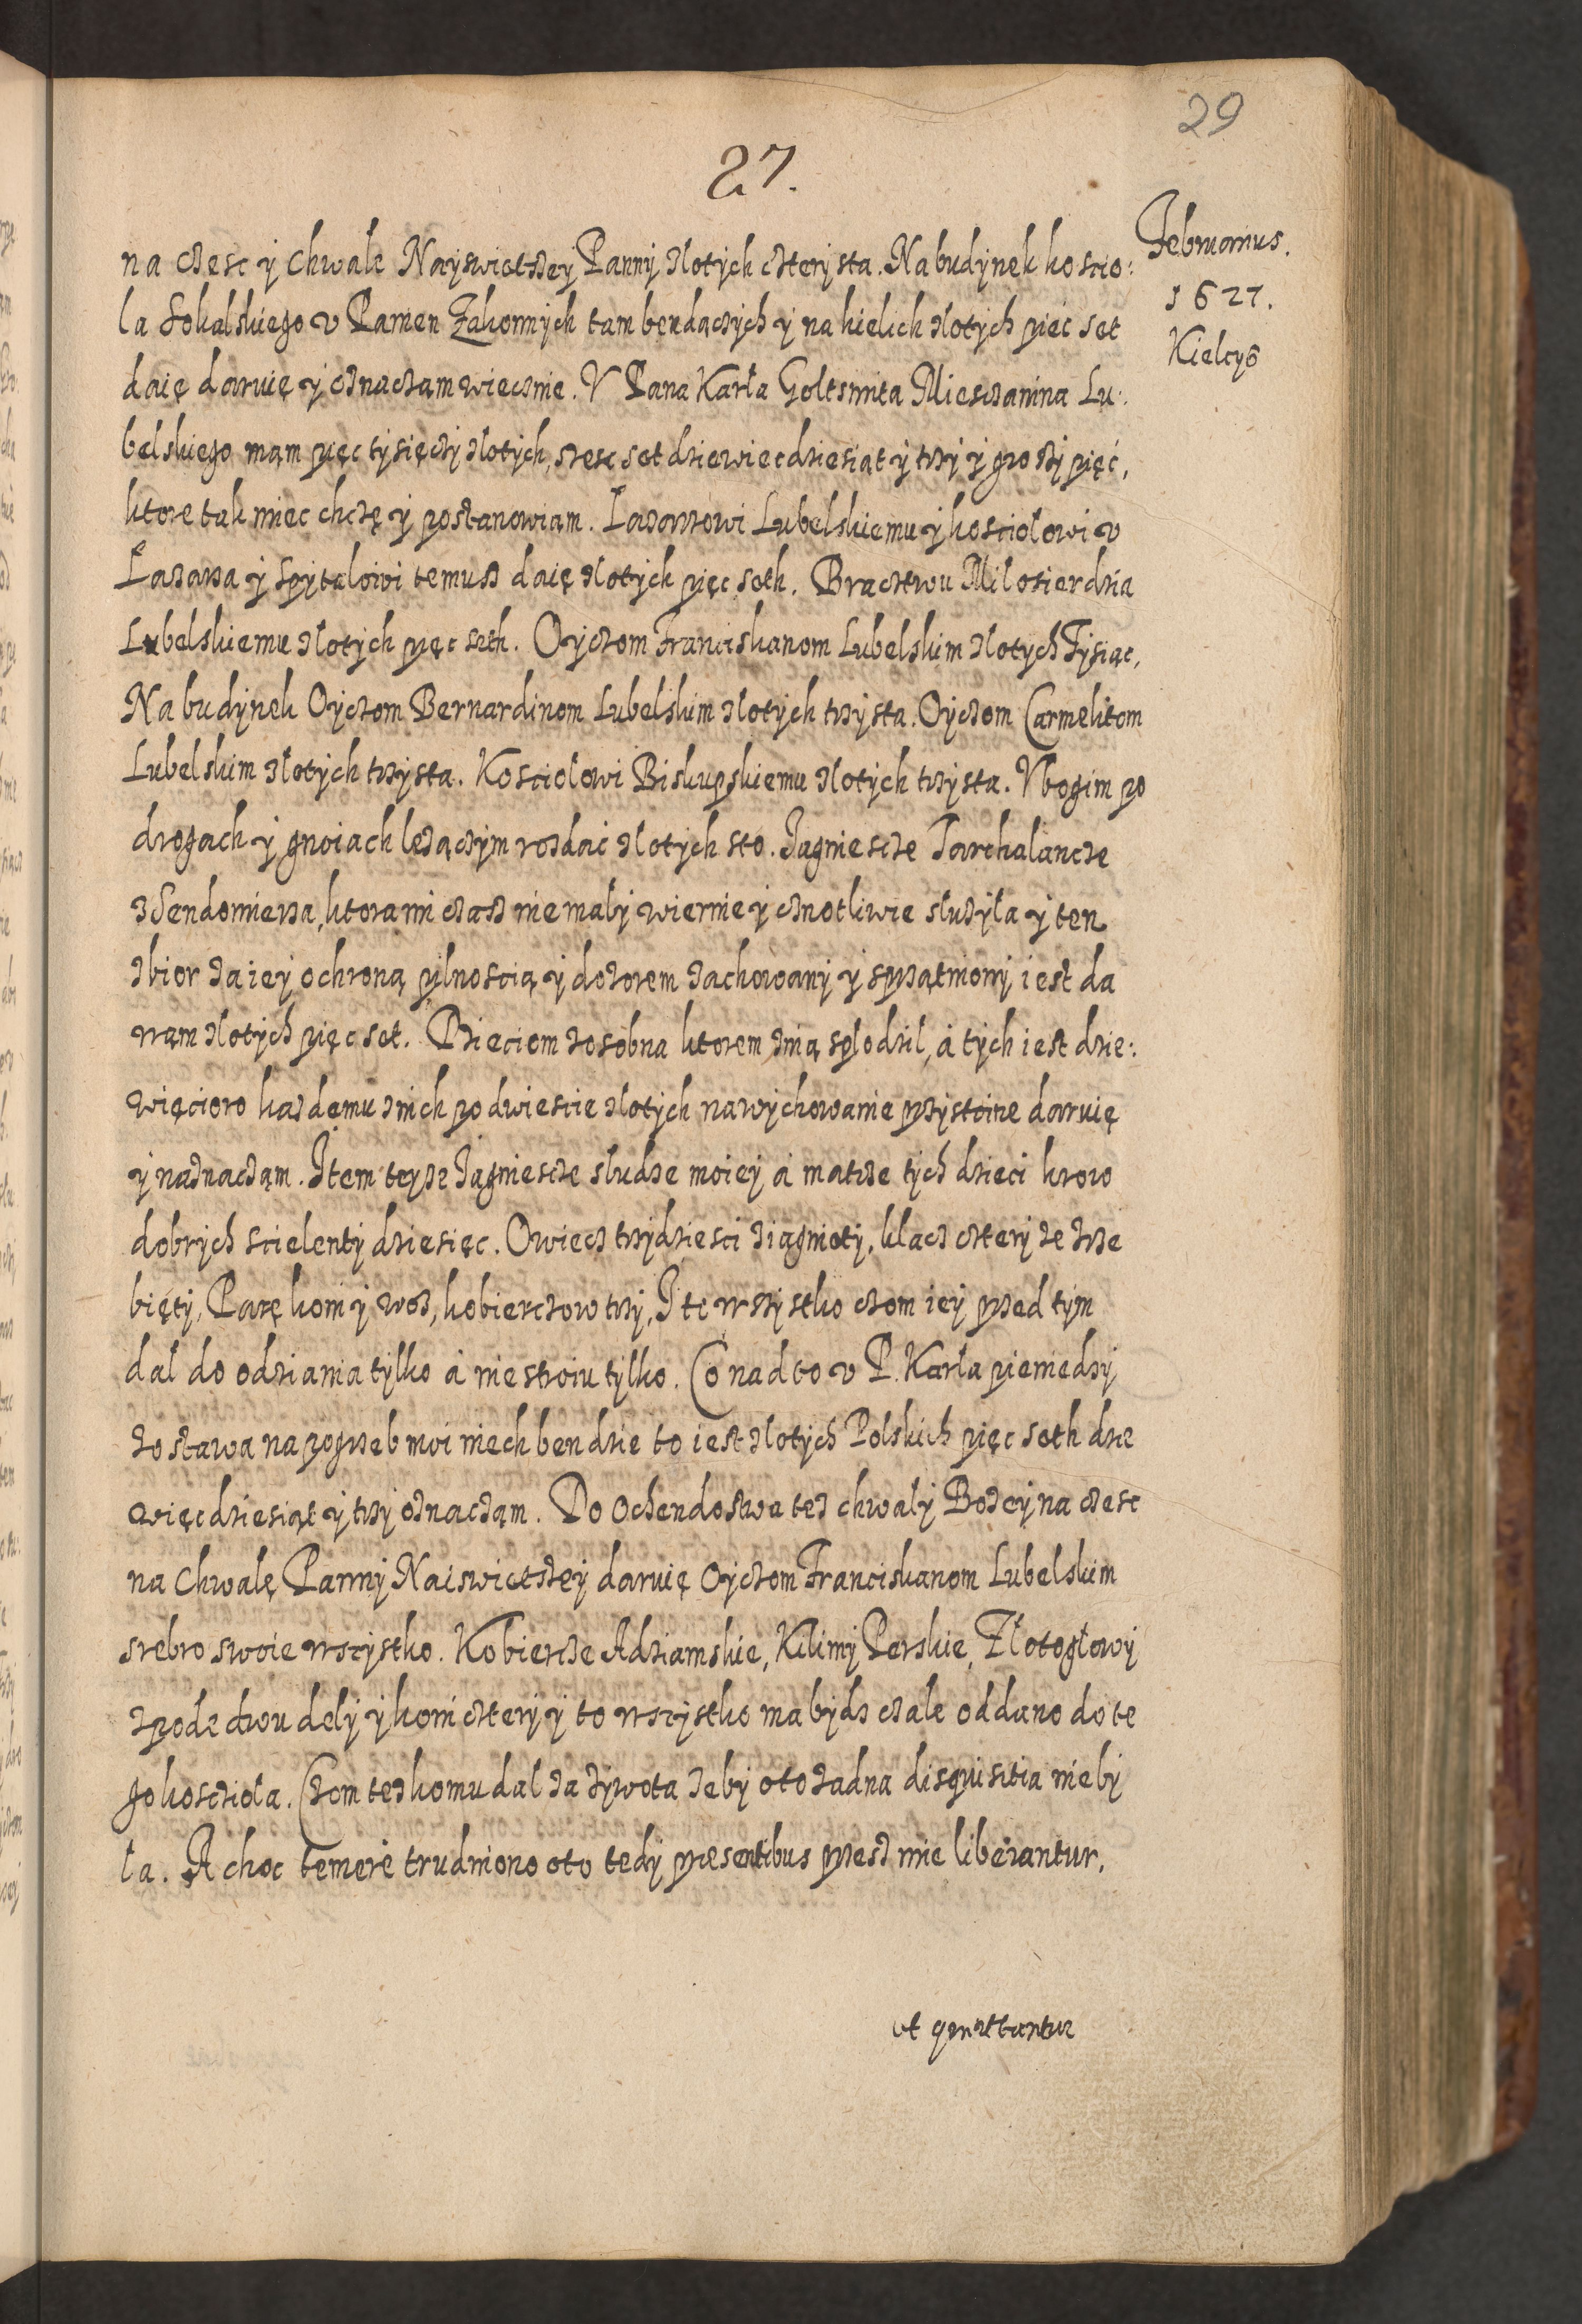 29
27.
Februarius.
1627.
Kielcys
na czesc y chwałę Nayswiętszey Panny złotych czterysta. Na budynek koscio:
ła Sokalskiego v Panien Zakonnych tam bendączych y na kielich złotych pięć set
daię daruię y oznaczam wiecznie. V Pana Karła Goltsmita Miesczanina Lu:
belskiego mąm pięc tysięczy złotych, szesc set dziewiecdziesiąt y trzy y groszy pięć,
ktore tak miec chczę y postanowiam. Lazarzowi Lubelskiemu y kosciołowi v
Łazarza y Spytalowi temusz daię złotych pięc seth. Bractwu Milosierdzia
Lubelskiemu złotych pięc seth. Oyczom Franciskanom Lubelskim złotych Tysiąc,
Na budynek Oyczom Bernardinom Lubelskim złotych trzysta. Oyczom Carmelitom
Lubelskim złotych trzysta. Kosciolowi Biskupskiemu złotych trzysta. Vbogim po
drogach y gnoiach leżączym rozdać złotych sto. Jagniescze Tarchalancze
z Sendomierza, ktora mi czasz niemały wiernie y cznotliwie służyła y ten
zbior za iey ochroną pylnoscią y dozorem zachowany y sprzątniony iest da
rvąm złotych pięc set. Dzieciom zosobna ktorem znią splodzil, a tych iest dzie:
więcioro każdemu znich po dwiescie złotych na wychowanie przystoine daruię
y naznacząm. Item teysz Jagniescze sludze moiey a matcze tych dzieci krow
dobrych scielenty dziesięc. Owiecz trzydziesci z iagnioty, klacz cztery ze zrze
bięty, Parę koni y woz, kobierczow trzy, I to wszystko czom iey przed tym
dal do odziania tylko a nie stroiu tylko. Co nad to v P. Karła pieniedzy
zostawa na pogrzeb moi niech bendzie to iest złotych Polskich pięc seth dzie
więcdziesiąt y trzy oznacząm. Do Ochendostwa tez chwały Bożey na czesc
na Chwalę Panny Naiswiętszey daruię Oyczom Franciskanom Lubelskim
srebro swoie wszystko. Kobiercze Adziamskie, Kilimy Perskie, Złotogłowy
zpode dwu dely y koni cztery y to wszystko ma bydz czale oddano do te
go kosczioła. Czom tez komu dal za żywota żeby oto żadna disquisitia nie by
ła. A choc temere trudniono oto tedy presentibus przez mie liberantur,
et quittantur